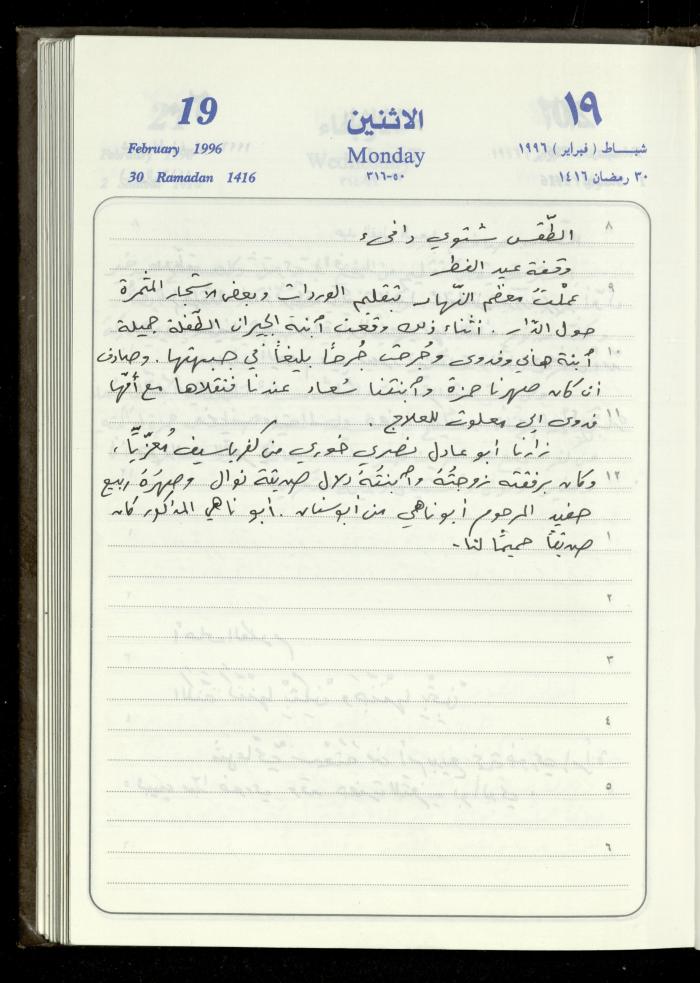 19
الاثنين
١٩
February 1996
Monday
شبـــاط ( فبراير ) ١٩٩٦
30 Ramadan 1416
٥٠-٣١٦
٣٠ رمضان ١٤١٦
٨
الطّقس شتوي دافىء
وقفة عيد الفطر
٩
عملْتُ معظم النّهار بتقليم الوردات وبعض الاشجار المثمرة
حول الدّار . أثناء ذلك وقعَت أبنة الجيران الطّفلة جميلة
١٠
أبنة هاني وفدوى وجُرحَت جُرحاً بليغاً في جبهتها . وصادف
ان كان صهرنا حمزة وأبنتنا سُعاد عندنا فنقلاها مع أمّها
١١
فدوى الى معلوت للعلاج .
زارنا أبو عادل نصري خوري من كفر ياسيف مُعزّياً ،
١٢
وكان برفقته زوجتُهُ وأبنتُهُ دلال صديقة نوال وصهرُهُ ربيع
حفيد المرحوم أبو ناهي من أبو سنان . أبو ناهي المذكور كان
١
صديقاً حميمًا لنا .
٢
٣
٤
٥
٦